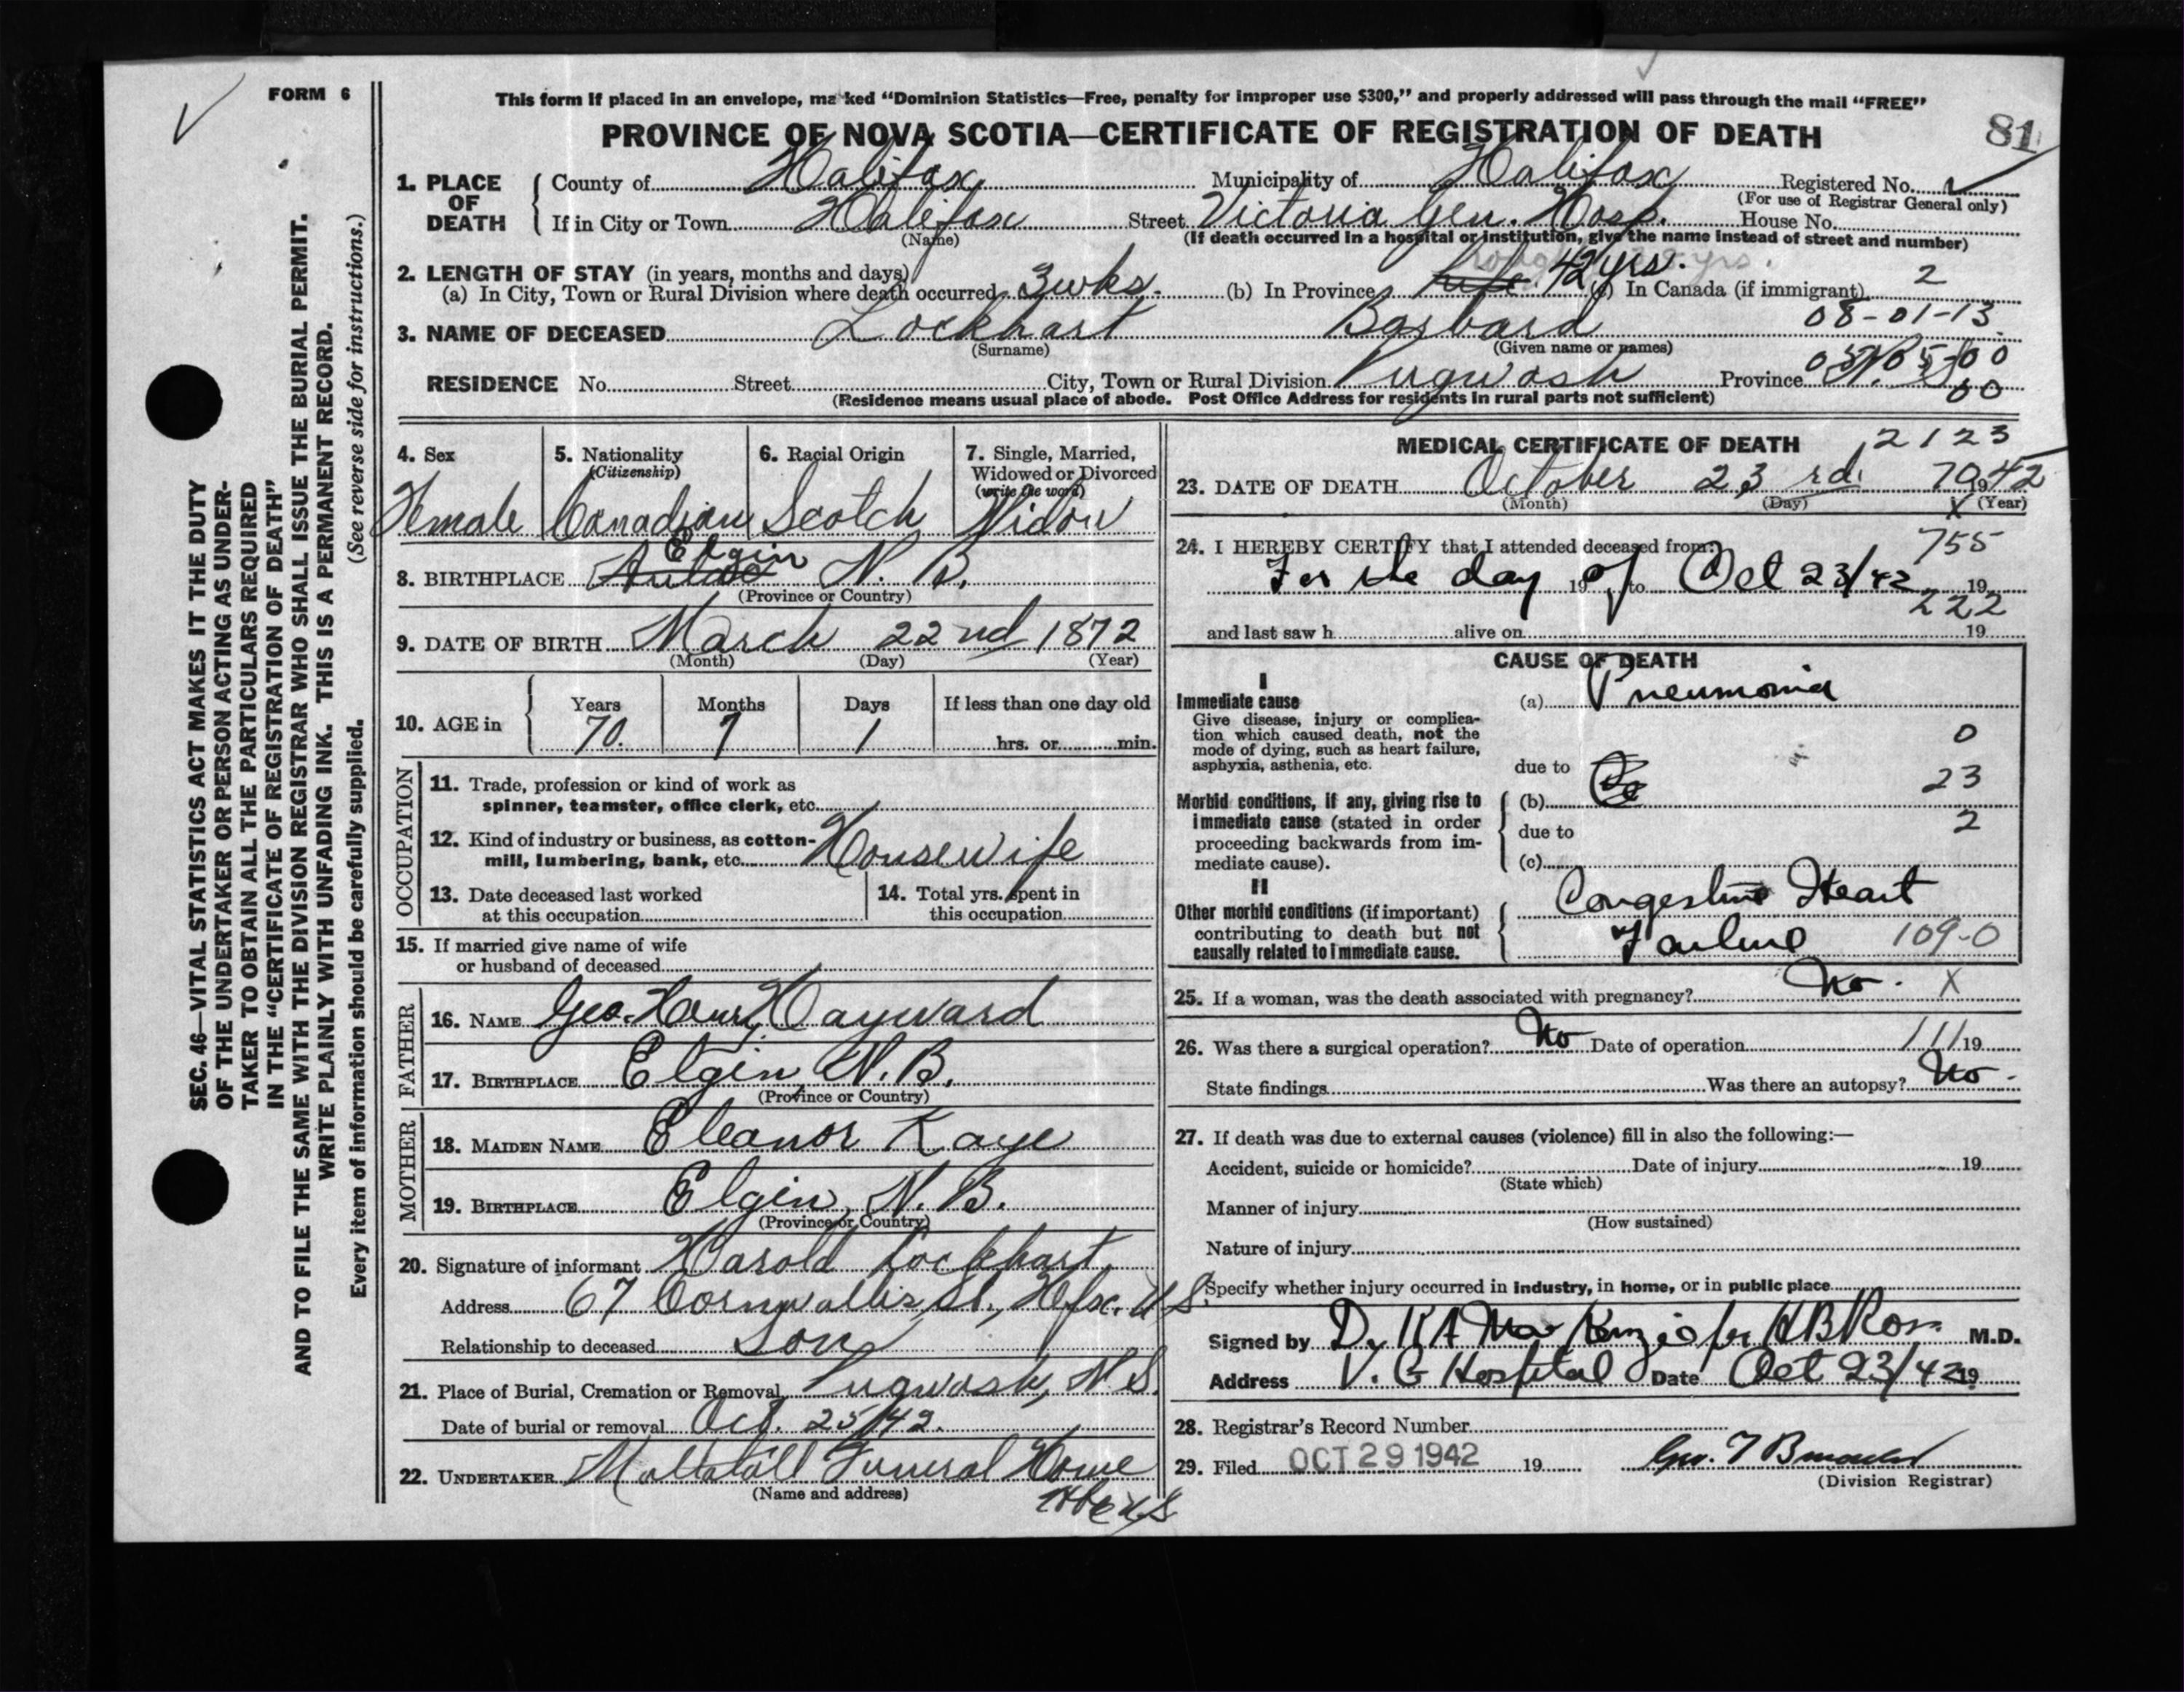 FORM 6
This form if placed in an envelope, marked “Dominion Statistics—Free, penalty for improper use $300,” and properly addressed will pass through the mail “FREE”
PROVINCE OF NOVA SCOTIA—CERTIFICATE OF REGISTRATION OF DEATH
81
1. PLACE OF DEATH
County of Halifax Municipality of Halifax Registered No.
(For use of Registrar General only)
If in City or Town Halifax Street Victoria Gen. Hosp. House No.
(Name) (If death occurred in a hospital or institution, give the name instead of street and number)
2. LENGTH OF STAY (in years, months and days)
(a) In City, Town or Rural Division where death occurred 3 wks. (b) In Province life 42 yrs. (c) In Canada (if immigrant) 2
08-01-13
3. NAME OF DECEASED Lockhart Barbara
(Surname) (Given name or names)
RESIDENCE No. Street City, Town or Rural Division Pugwash Province N.S.
00
(Residence means usual place of abode. Post Office Address for residents in rural parts not sufficient)
4. Sex
Female
5. Nationality
(Citizenship)
Canadian
6. Racial Origin
Scotch
7. Single, Married, Widowed or Divorced
(write the word)
Widow
Elgin
8. BIRTHPLACE N. B.
(Province or Country)
9. DATE OF BIRTH March 22nd 1872
(Month) (Day) (Year)
10. AGE in
Years Months Days If less than one day old
70. 7 1 hrs. or min.
OCCUPATION
11. Trade, profession or kind of work as
spinner, teamster, office clerk, etc.
12. Kind of industry or business, as cotton-
mill, lumbering, bank, etc. Housewife
13. Date deceased last worked
at this occupation
14. Total yrs. spent in
this occupation
15. If married give name of wife
or husband of deceased
FATHER
16. NAME Geo. Henry Hayward
17. BIRTHPLACE Elgin, N.B.
(Province or Country)
MOTHER
18. MAIDEN NAME Eleanor Kaye
19. BIRTHPLACE Elgin, N. B.
(Province or Country)
20. Signature of informant Harold Lockhart
Address 67 Cornwallis St., Hfx. N.S.
Relationship to deceased Son
21. Place of Burial, Cremation or Removal Pugwash, N.S.
Date of burial or removal Oct. 25/42.
22. UNDERTAKER Mattatall Funeral Home
(Name and address)
N.S.
MEDICAL CERTIFICATE OF DEATH
2123
23. DATE OF DEATH October 23rd. 70 1942
(Month) (Day) (Year)
X
24. I HEREBY CERTIFY that I attended deceased from:
755
For the day 19 of to Oct 23/42 19
222
and last saw h alive on 19
CAUSE OF DEATH
I
Immediate cause
Give disease, injury or complica-
tion which caused death, not the
mode of dying, such as heart failure,
asphyxia, asthenia, etc.
(a) Pneumonia
0
due to
23
Morbid conditions, if any, giving rise to
immediate cause (stated in order
proceeding backwards from im-
mediate cause).
(b)
2
due to
(c)
II
Other morbid conditions (if important)
contributing to death but not
causally related to immediate cause.
Congestive Heart
Failure 109-0
25. If a woman, was the death associated with pregnancy? No. X
26. Was there a surgical operation? No Date of operation 111 19
State findings Was there an autopsy? No.
27. If death was due to external causes (violence) fill in also the following:—
Accident, suicide or homicide? Date of injury 19
(State which)
Manner of injury
(How sustained)
Nature of injury
Specify whether injury occurred in industry, in home, or in public place
Signed by Dr KA MacKenzie for HB Ross M.D.
Address V. G Hospital Date Oct 23/42 19
28. Registrar’s Record Number
29. Filed OCT 29 1942 19
(Division Registrar)
SEC. 46—VITAL STATISTICS ACT MAKES IT THE DUTY
OF THE UNDERTAKER OR PERSON ACTING AS UNDER-
TAKER TO OBTAIN ALL THE PARTICULARS REQUIRED
IN THE “CERTIFICATE OF REGISTRATION OF DEATH”
AND TO FILE THE SAME WITH THE DIVISION REGISTRAR WHO SHALL ISSUE THE BURIAL PERMIT.
WRITE PLAINLY WITH UNFADING INK. THIS IS A PERMANENT RECORD.
Every item of information should be carefully supplied. (See reverse side for instructions.)